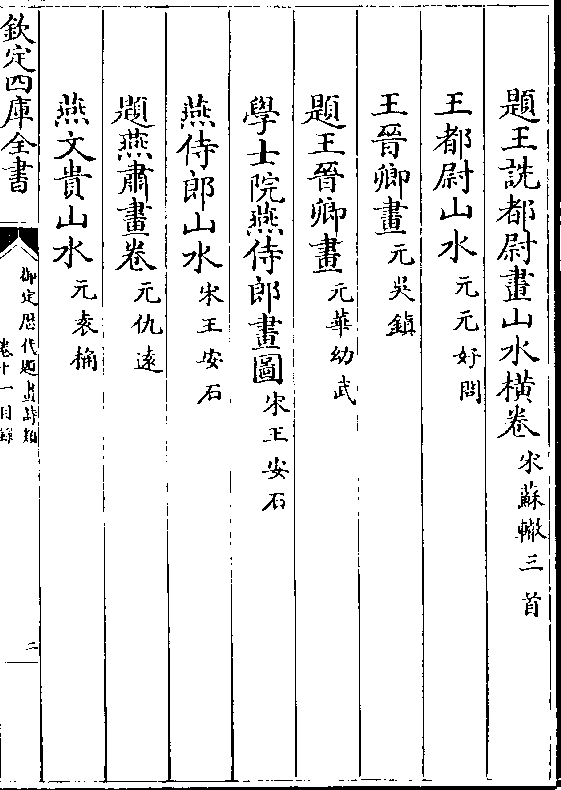 題王詵都尉畫山水橫卷宋蘇轍三首
王都尉山水元元好問
王晉卿畫元吳鎮
題王晉卿畫元華幼武
學士院燕侍郎畫圖宋王安石
燕侍郎山水宋王安石
題燕肅畫卷元仇遠
燕文貴山水元袁桷
欽定四庫全書
御定歷代題畫詩類
卷十一目錄
二